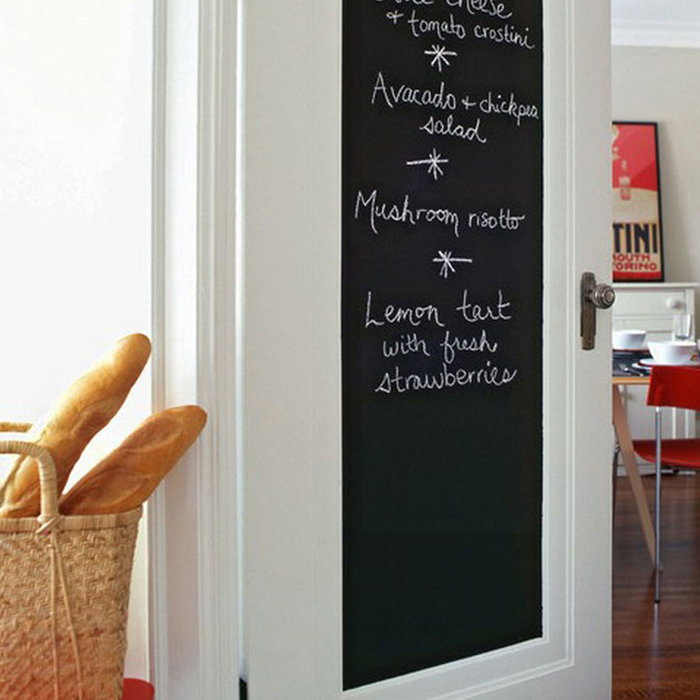 cheese
& tomato crostini
Avacado + chickpea
salad
Mushroom risotto
Lemon tart
with fresh
strawberries
TINI
TORINO